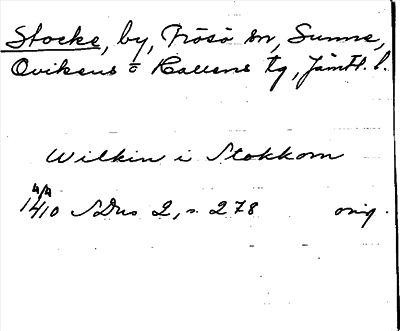 Stocke, by, Frösö sn, Sunne,
Ovikens o Hallens tg, Jämtl. l.
Wilkin i Stokkom
4/4
1410 SDns 2, s. 278 orig.